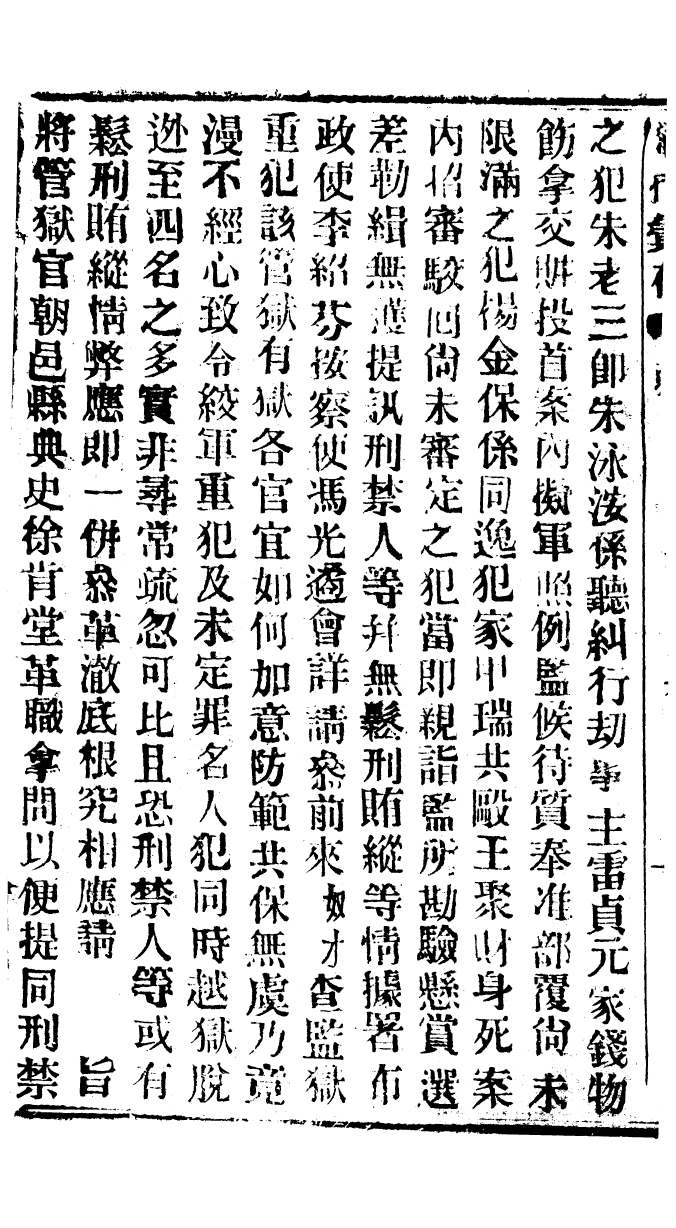 之犯朱老三卽朱泳汝係聽糾行刧事主雷貞元家錢物
飭拿交賍投首案內擬軍照例監候待質奉准部覆尙未
限滿之犯楊金保係同逸犯家甲瑞共毆王聚財身死案
內招審駮囘尙未審定之犯當即親詣監所勘驗懸賞選
差勒緝無獲提訊刑禁人等幷無鬆刑賄縱等情據署布
政使李紹芬按察使馮光遹會詳請叅前來奴才查監獄
重犯該管獄有獄各官宜如何加意防範共保無虞乃竟
漫不經心致令絞軍重犯及未定罪名人犯同時越獄脫
逃至四名之多實非尋常疏忽可比且恐刑禁人等或有
鬆刑賄縱情弊應即一併叅革澈底根究相應請旨
將管獄官朝邑縣典史徐肯堂革職拿問以便提同刑禁